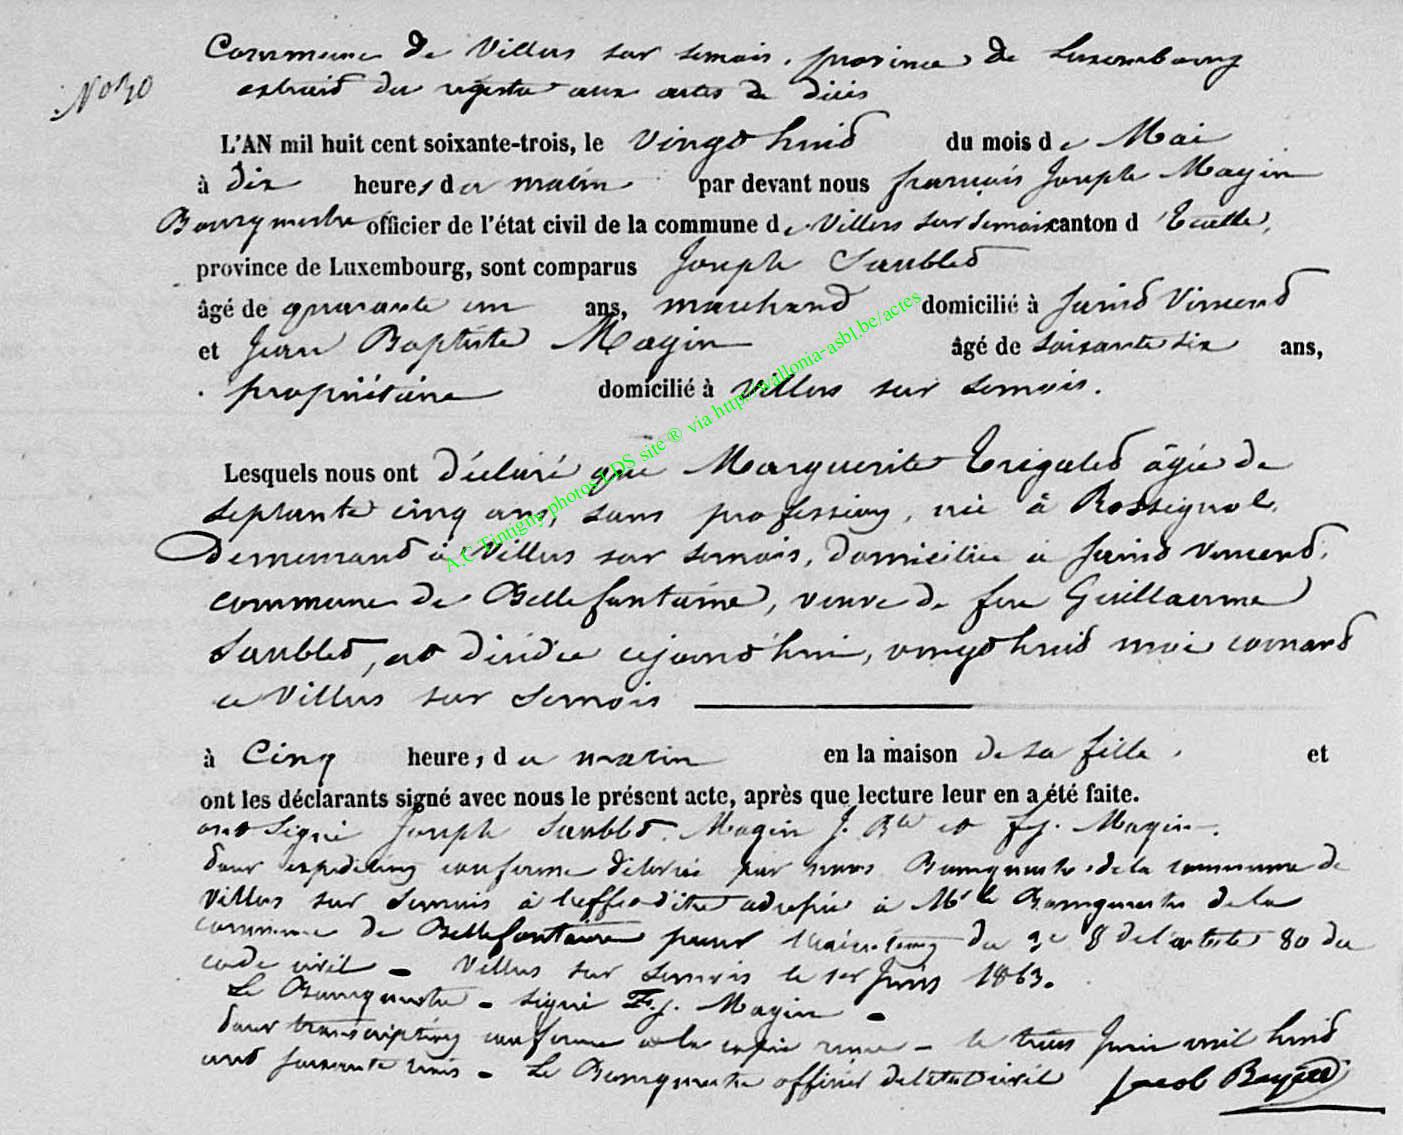 Commune de Villers sur Semois, province de Luxembourg
No 10
extrait du registre aux actes de décès
L'AN mil huit cent soixante-trois, le vingt huit du mois de Mai
à dix heures du matin par devant nous françois Joseph Magin
Bourgmestre officier de l'état civil de la commune de Villers sur Semois canton d'Etalle,
province de Luxembourg, sont comparus Joseph Saublet
âgé de quarante un ans, marchand domicilié à Saint Vincent
et Jean Baptiste Magin âgé de soixante six ans,
propriétaire domicilié à Villers sur Semois.
Lesquels nous ont déclaré que Marguerite Trigalet âgée de
septante cinq ans, sans profession, née à Rossignol,
demeurant à Villers sur Semois, domiciliée à Saint Vincent,
commune de Bellefontaine, veuve de feu Guillaume
Saublet, est décédée cejourd'hui, vingt huit mai courant
a Villers sur Semois
à Cinq heures du matin en la maison de sa fille, et
ont les déclarants signé avec nous le présent acte, après que lecture leur en a été faite.
ont signé Joseph Saublet. Magin J. Bte et f. j. Magin.
pour expédition conforme délivrée par nous Bourgmestre de la commune de
Villers sur Semois à l'effet d'être adressée à Mr le Bourgmestre de la
commune de Bellefontaine pour du § 8 de l'article 80 du
code civil - Villers sur Semois le 1er Juin 1863.
Le Bourgmestre - signé F. j. Magin -
pour transcription conforme a la copie - le trois Juin mil huit
cent soixante trois - Le Bourgmestre officier de l'état civil Jacob
A.C Tintigny photos LDS site ® via http://wallonia-asbl.be/actes